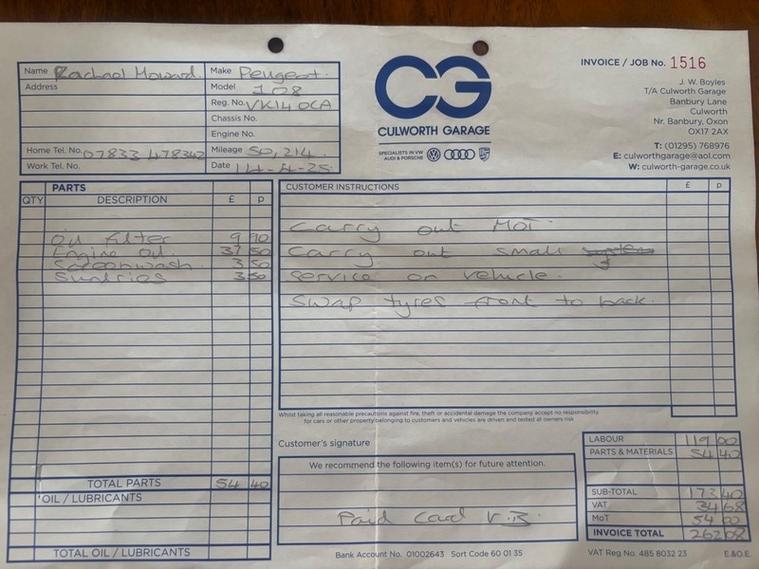 Name Rachael Howard
Address
Home Tel. No. 07833 478342
Work Tel. No.
Make Peugeot.
Model 108
Reg. No. VK14 OCA
Chassis No.
Engine No.
Mileage 50,214
Date 14-4-25
CG
CULWORTH GARAGE
SPECIALISTS IN VW
AUDI & PORSCHE
INVOICE / JOB No. 1516
J. W. Boyles
T/A Culworth Garage
Banbury Lane
Culworth
Nr. Banbury, Oxon
OX17 2AX
T: (01295) 768976
E: culworthgarage@aol.com
W: culworth-garage.co.uk
PARTS
QTY DESCRIPTION £ p
Oil Filter 9 90
Engine Oil. 37 50
Screenwash 3 50
Sundries 3 50
TOTAL PARTS 54 40
OIL / LUBRICANTS
TOTAL OIL / LUBRICANTS
CUSTOMER INSTRUCTIONS £ p
Carry out MOT.
Carry out small
service on vehicle.
Swap tyres front to back.
Whilst taking all reasonable precautions against fire, theft or accidental damage the company accept no responsibility
for cars or other property belonging to customers and vehicles are driven and tested at owners risk
Customer's signature
We recommend the following item(s) for future attention.
Paid Card V.B.
Bank Account No. 01002643 Sort Code 60 01 35
LABOUR 119 00
PARTS & MATERIALS 54 40
SUB-TOTAL 173 40
VAT 34 68
MoT 54 00
INVOICE TOTAL 262 08
VAT Reg No. 485 8032 23 E.&O.E.